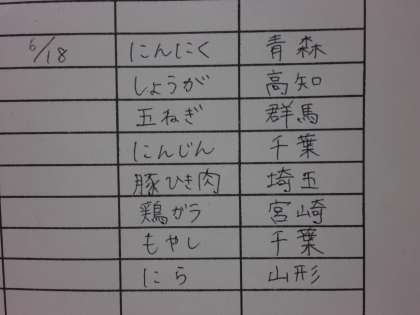 6/18 にんにく 青森
しょうが 高知
玉ねぎ 群馬
にんじん 千葉
豚ひき肉 埼玉
鶏ガラ 宮崎
もやし 千葉
にら 山形